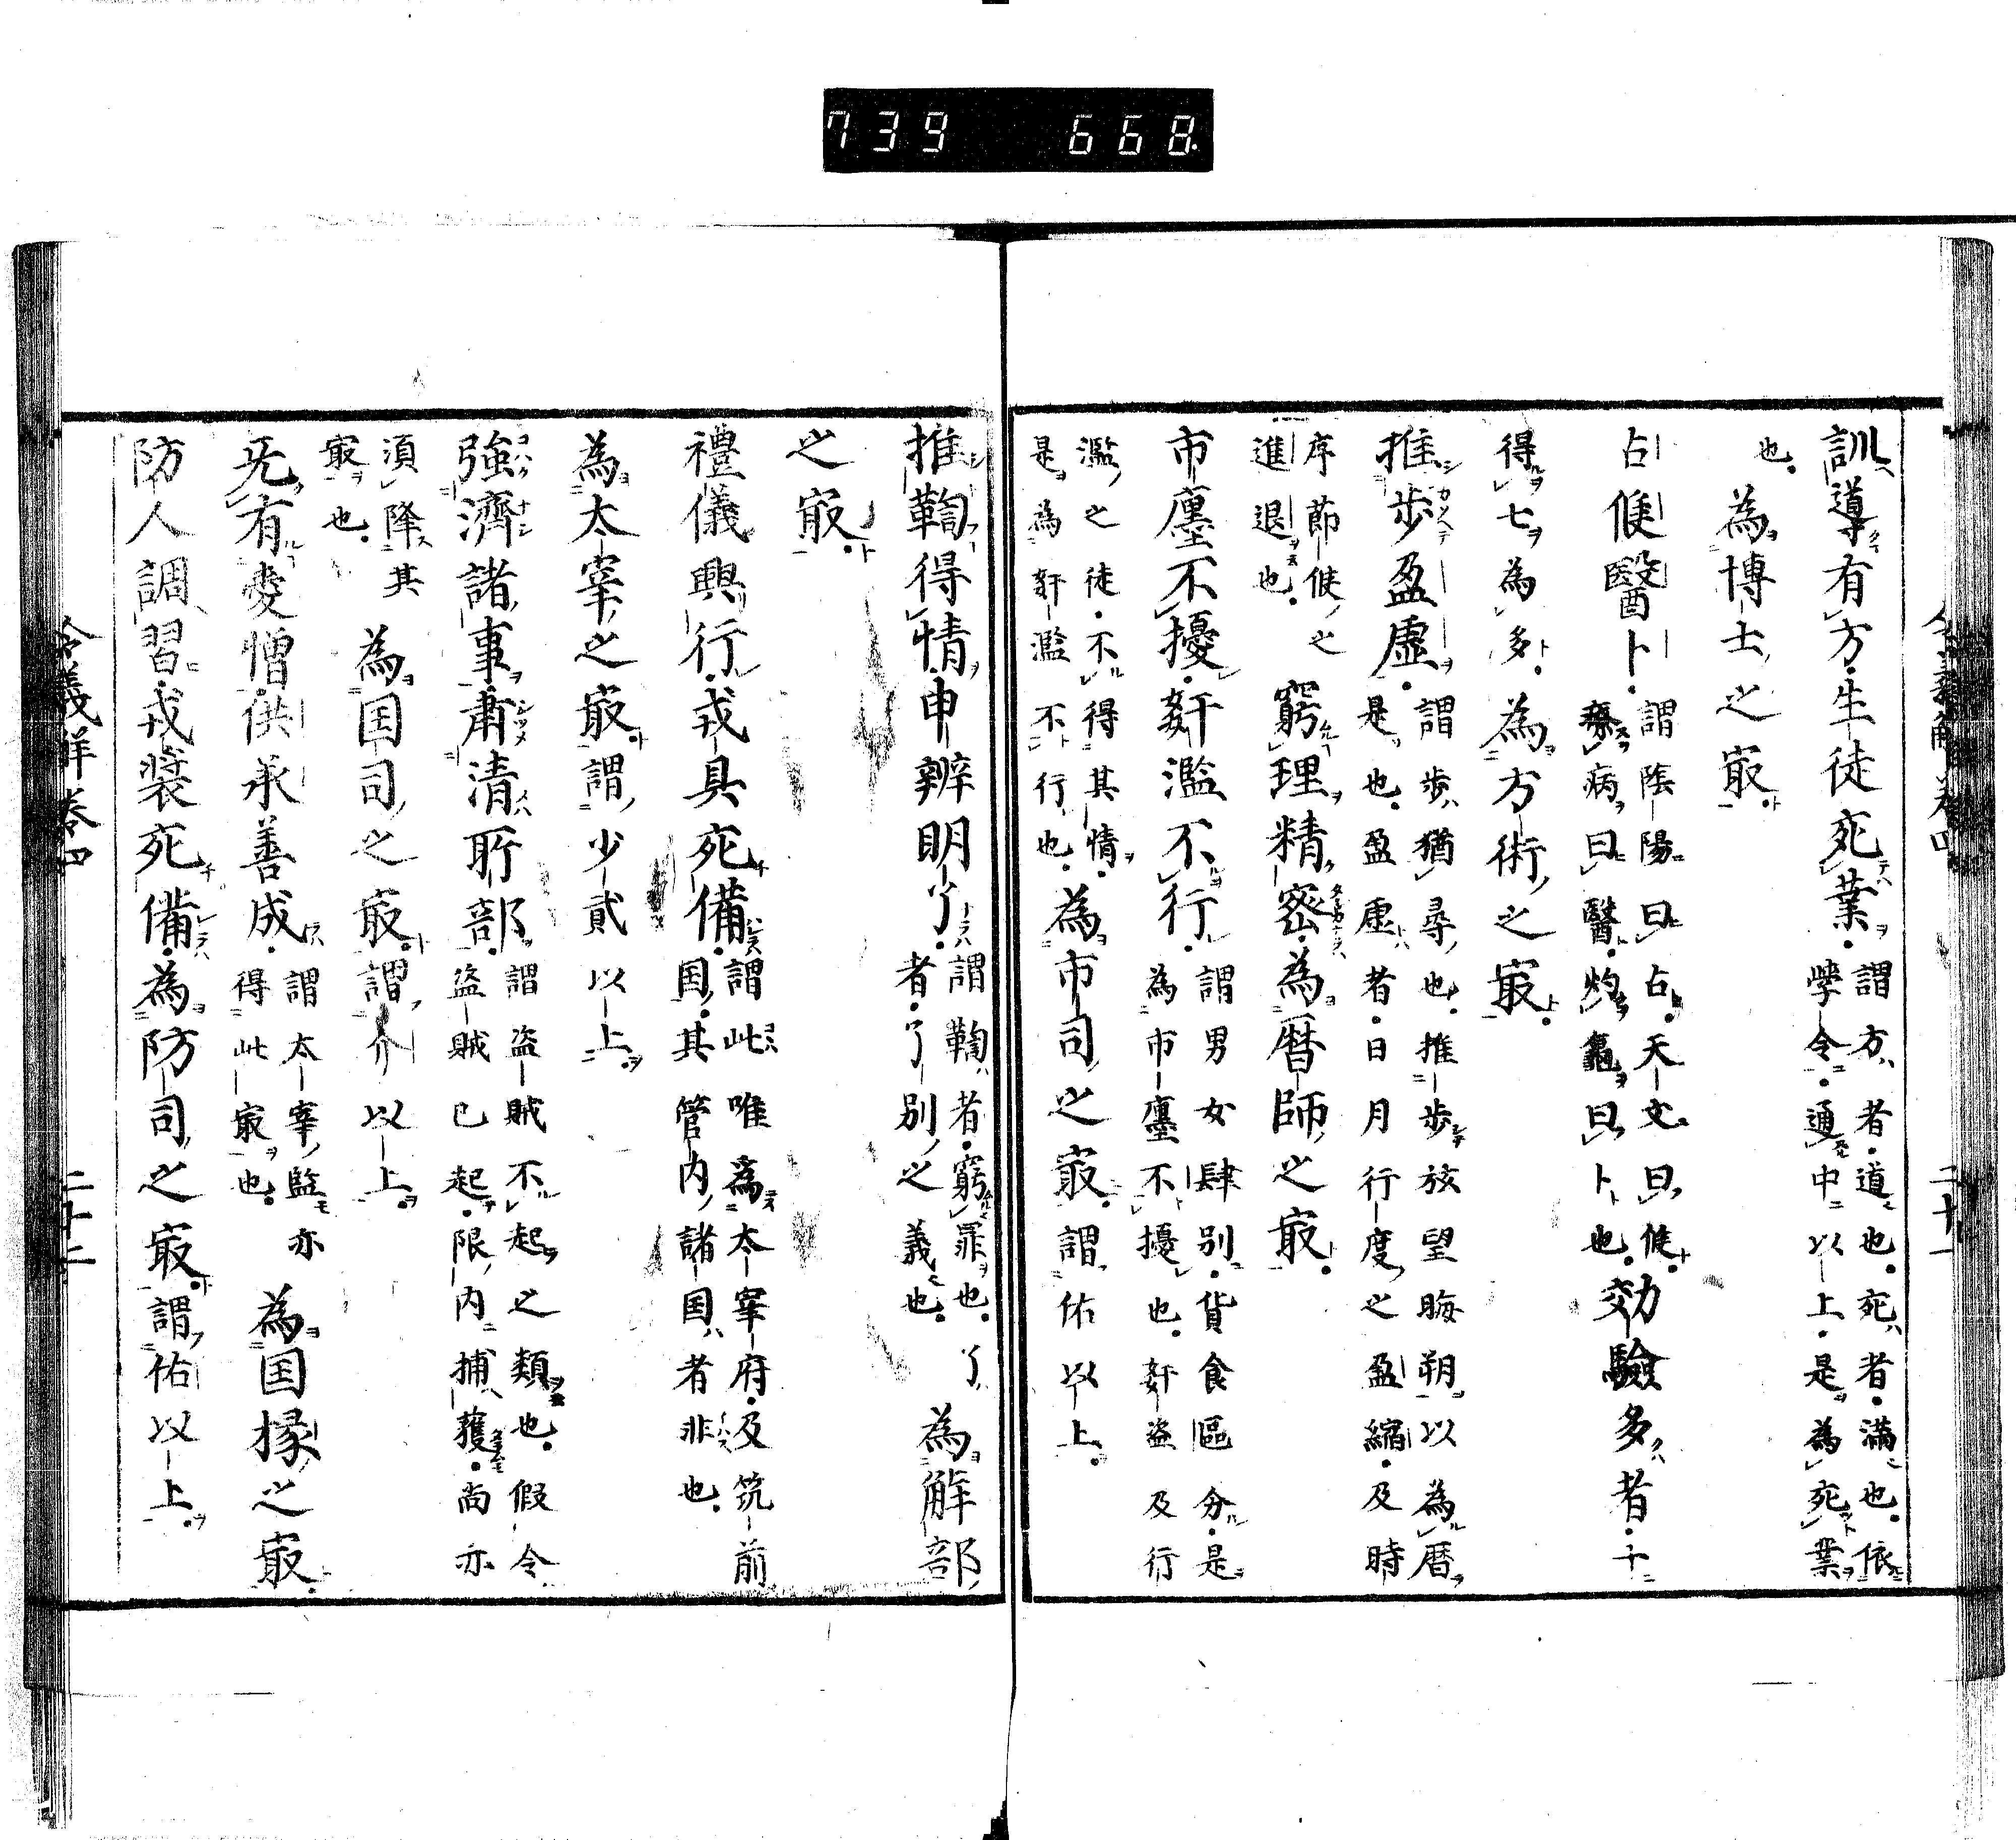 739 668
令義解卷四 二十一
訓導有方生徒充業謂方者道也充者滿也依學令通中以上是為充業
也為博士之㝡
占候醫卜謂陰陽曰占天文曰候療病曰醫灼龜曰卜也効驗多者十
得七為多為方術之㝡
推步盈虛謂步猶尋也推步弦望晦朔以為曆是也盈虛者日月行度之盈縮及時
序節候之進退也窮理精密為曆師之㝡
市廛不擾姧濫不行謂男女肆別貨食區分是為市廛不擾也姧盜及行
濫之徒不得其情是為姧濫不行也為市司之㝡謂佑以上
推鞫得情申辨明了謂鞫者窮罪也了者了別之義也為解部
之㝡
禮儀興行戎具充備謂此唯為太宰府及筑前国其管内諸国者非也
為太宰之㝡謂少貳以上
強濟諸事肅清所部謂盜賊不起之類也假令盜賊已起限内捕獲尚亦
須降其㝡也為国司之㝡謂介以上
无有愛憎供承善成謂太宰監亦得此㝡也為国掾之㝡
防人調習戎裝充備為防司之㝡謂佑以上
令義解卷四 二十二